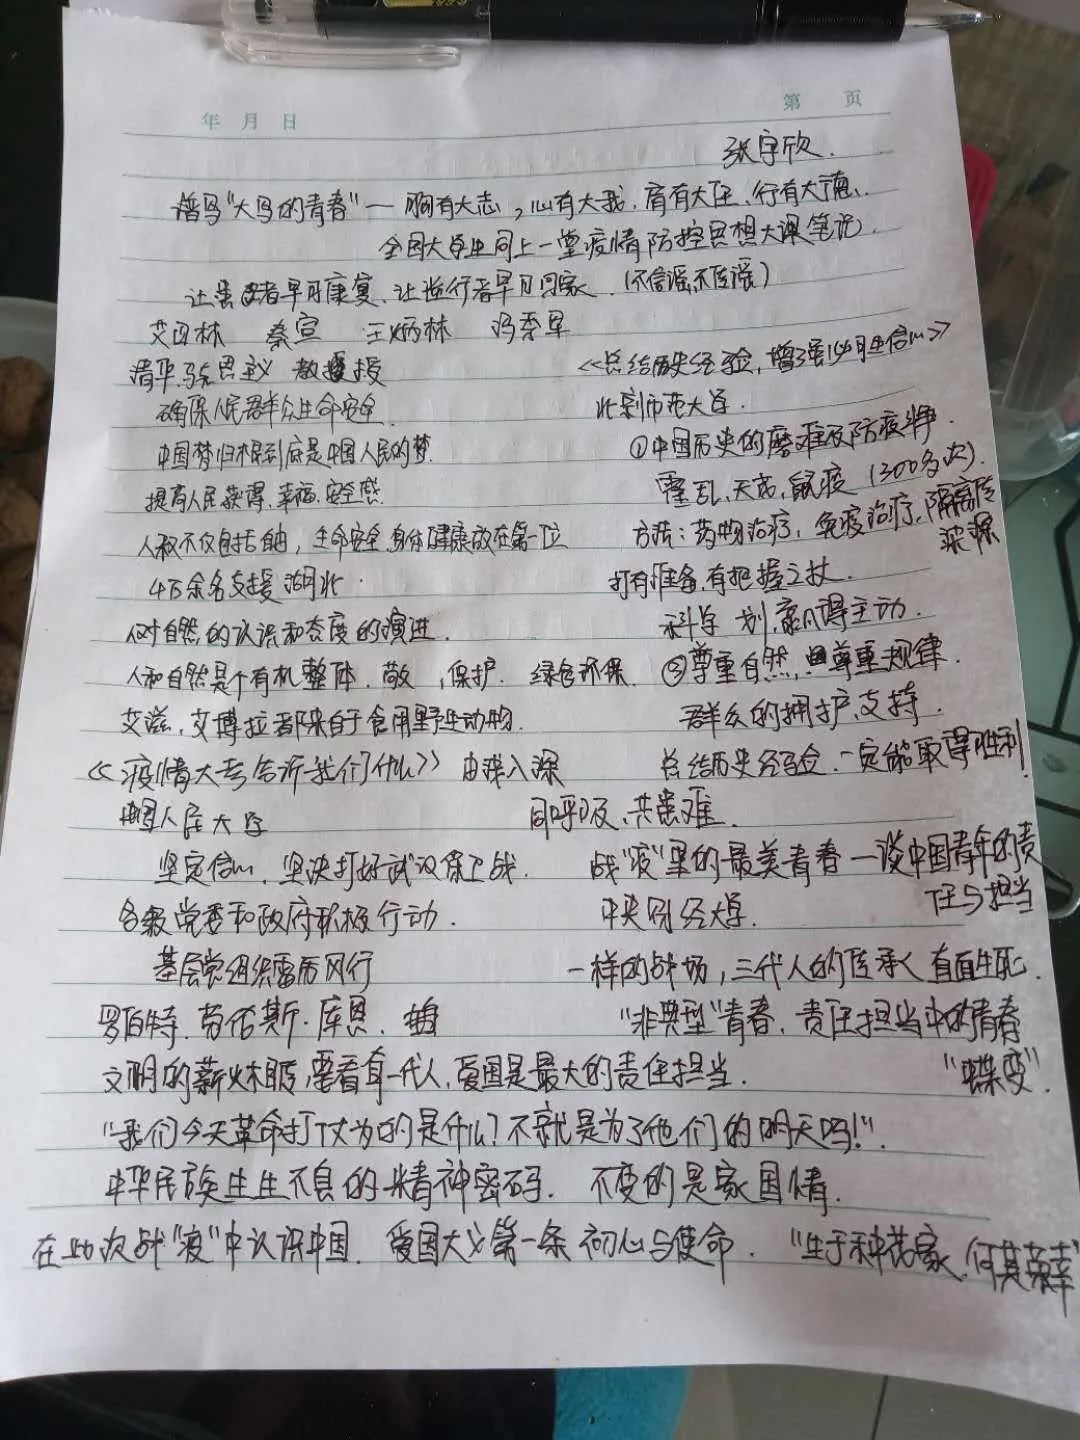 第 页
年 月 日
张宇欣.
"大写的青春"一胸有大志,心有大我,肩有大任、行有大德.
全国大学生同上一堂疫情防控思想大课笔记.
让患者早日康复、让逆行者早日回家.(不信谣不传谣)
艾四林 秦宣 王炳林 冯秀军
清华马思主义 教授
《总结历史经验,增强必胜信心》
确保人民群众生命安全.
北京师范大学.
中国梦归根到底是中国人民的梦.
①中国历史的磨难及防疫斗争.
提高人民获得、幸福、安全感
霍乱,天花,鼠疫(300多次).
人权不仅包括自由,生命安全,身体健康放在第一位
方法:药物治疗,免疫治疗,隔离传
染源
4万余名支援湖北.
打有准备、有把握之仗.
人对自然的认识和态度的演进.
科学 划,赢得主动.
人和自然是个有机整体.敬 ,保护.绿色环保.
②尊重自然,尊重规律.
艾滋,艾博拉都来自于食用野生动物.
群众的拥护、支持.
《疫情大考告诉我们什么》由浅入深
总结历史经验.一定能取得胜利!
中国人民大学
同呼吸、共患难.
坚定信心,坚决打好武汉保卫战.
战"疫"里的最美青春一谈中国青年的责
任与担当
各级党委和政府积极行动.
中央财经大学.
基层党组织雷厉风行
一样的战场,三代人的传承 直面生死.
罗伯特.劳伦斯·库恩.
"非典型"青春,责任担当中的青春
"蝶变".
文明的薪火相传,要看每一代人,爱国是最大的责任担当.
"我们今天革命打仗为的是什么?不就是为了他们的明天吗!".
中华民族生生不息的精神密码.不变的是家国情.
在此次战"疫"中认识中国.爱国大义第一条 初心与使命."生于种花家,何其荣幸"